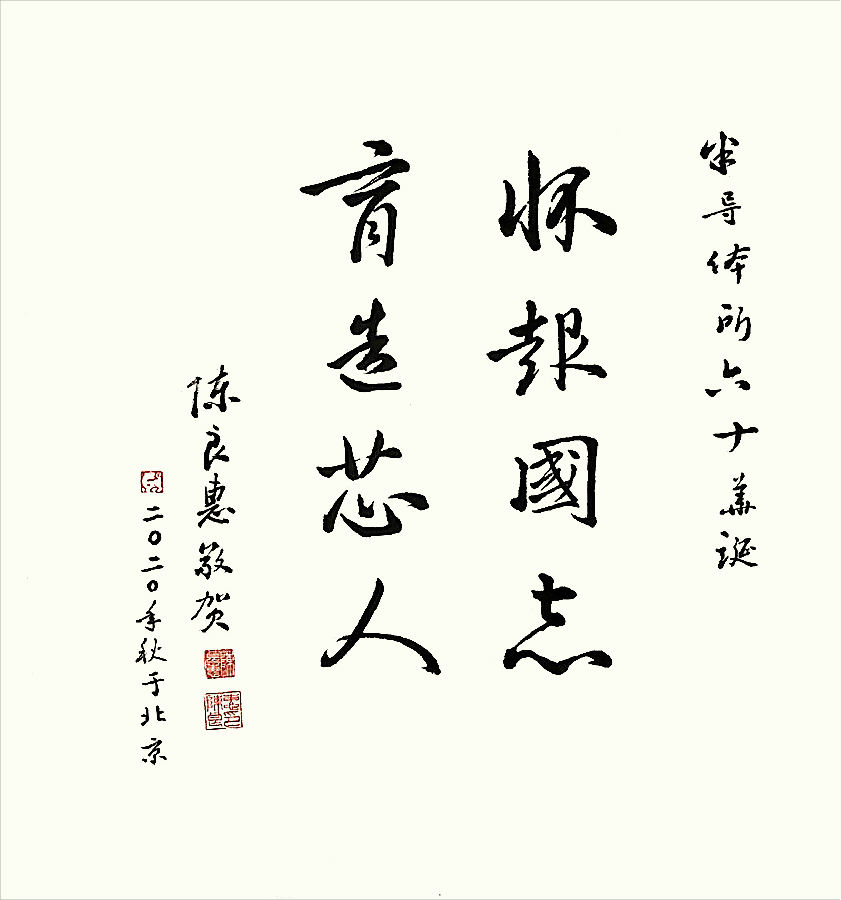 半导体所六十華誕
怀報國志
育造芯人
陈良惠敬贺
二〇二〇年秋于北京